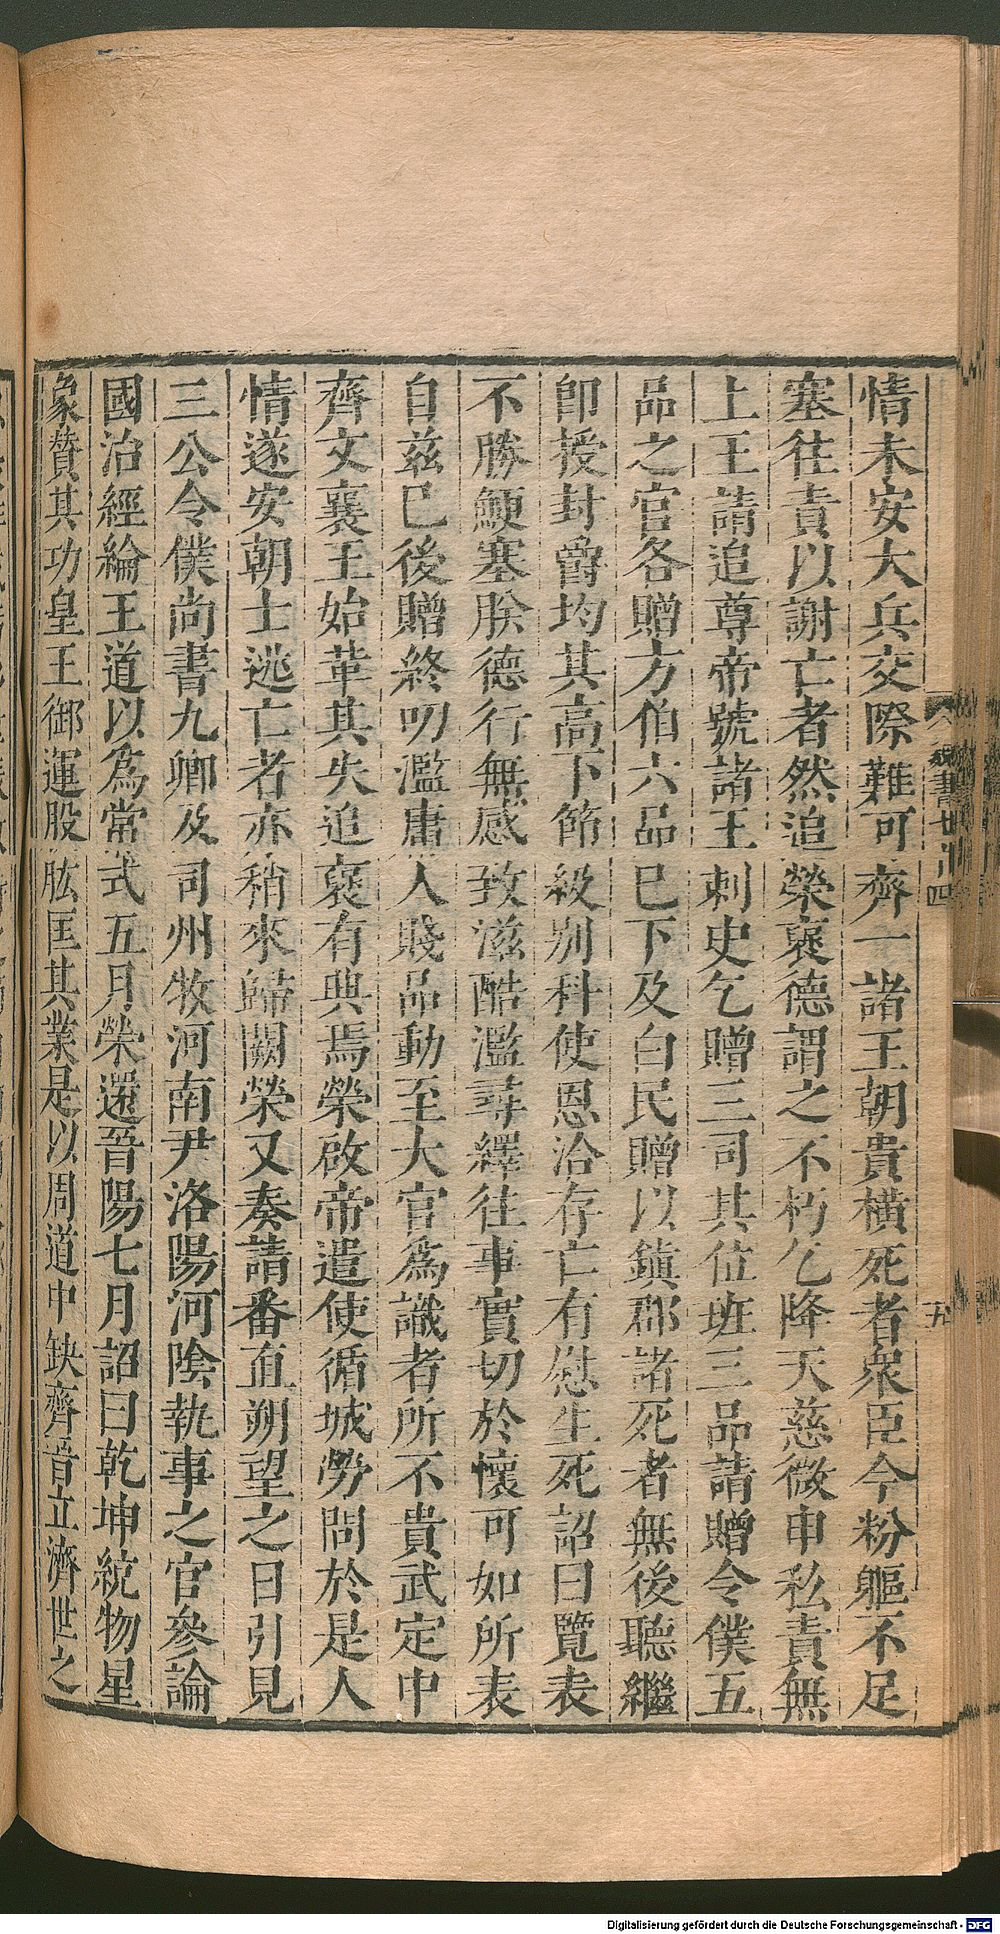 情未安大兵交際難可齊一諸王朝貴橫死者衆臣今粉軀不足
塞往責以謝亡者然追榮襃德謂之不朽乞降天慈微申私責無
上王請追尊帝號諸王刺史乞贈三司其位班三品請贈令僕五
品之官各贈方伯六品已下及白民贈以鎮郡諸死者無後聽繼
卽授封爵均其高下節級別科使恩洽存亡有慰生死詔曰覽表
不勝鯁塞朕德行無感致滋酷濫尋繹往事實切於懷可如所表
自兹已後贈終叨濫庸人賤品動至大官爲識者所不貴武定中
齊文襄王始革其失追襃有典焉榮啟帝遣使循城勞問於是人
情遂安朝士逃亡者亦稍來歸闕榮又奏請番直朔望之日引見
三公令僕尚書九卿及司州牧河南尹洛陽河陰執事之官參論
國治經綸王道以爲常式五月榮還晉陽七月詔曰乾坤統物星
象贊其功皇王御運股肱匡其業是以周道中缺齊晉立濟世之
魏書
四
九
Digitalisierung gefördert durch die Deutsche Forschungsgemeinschaft - DFG